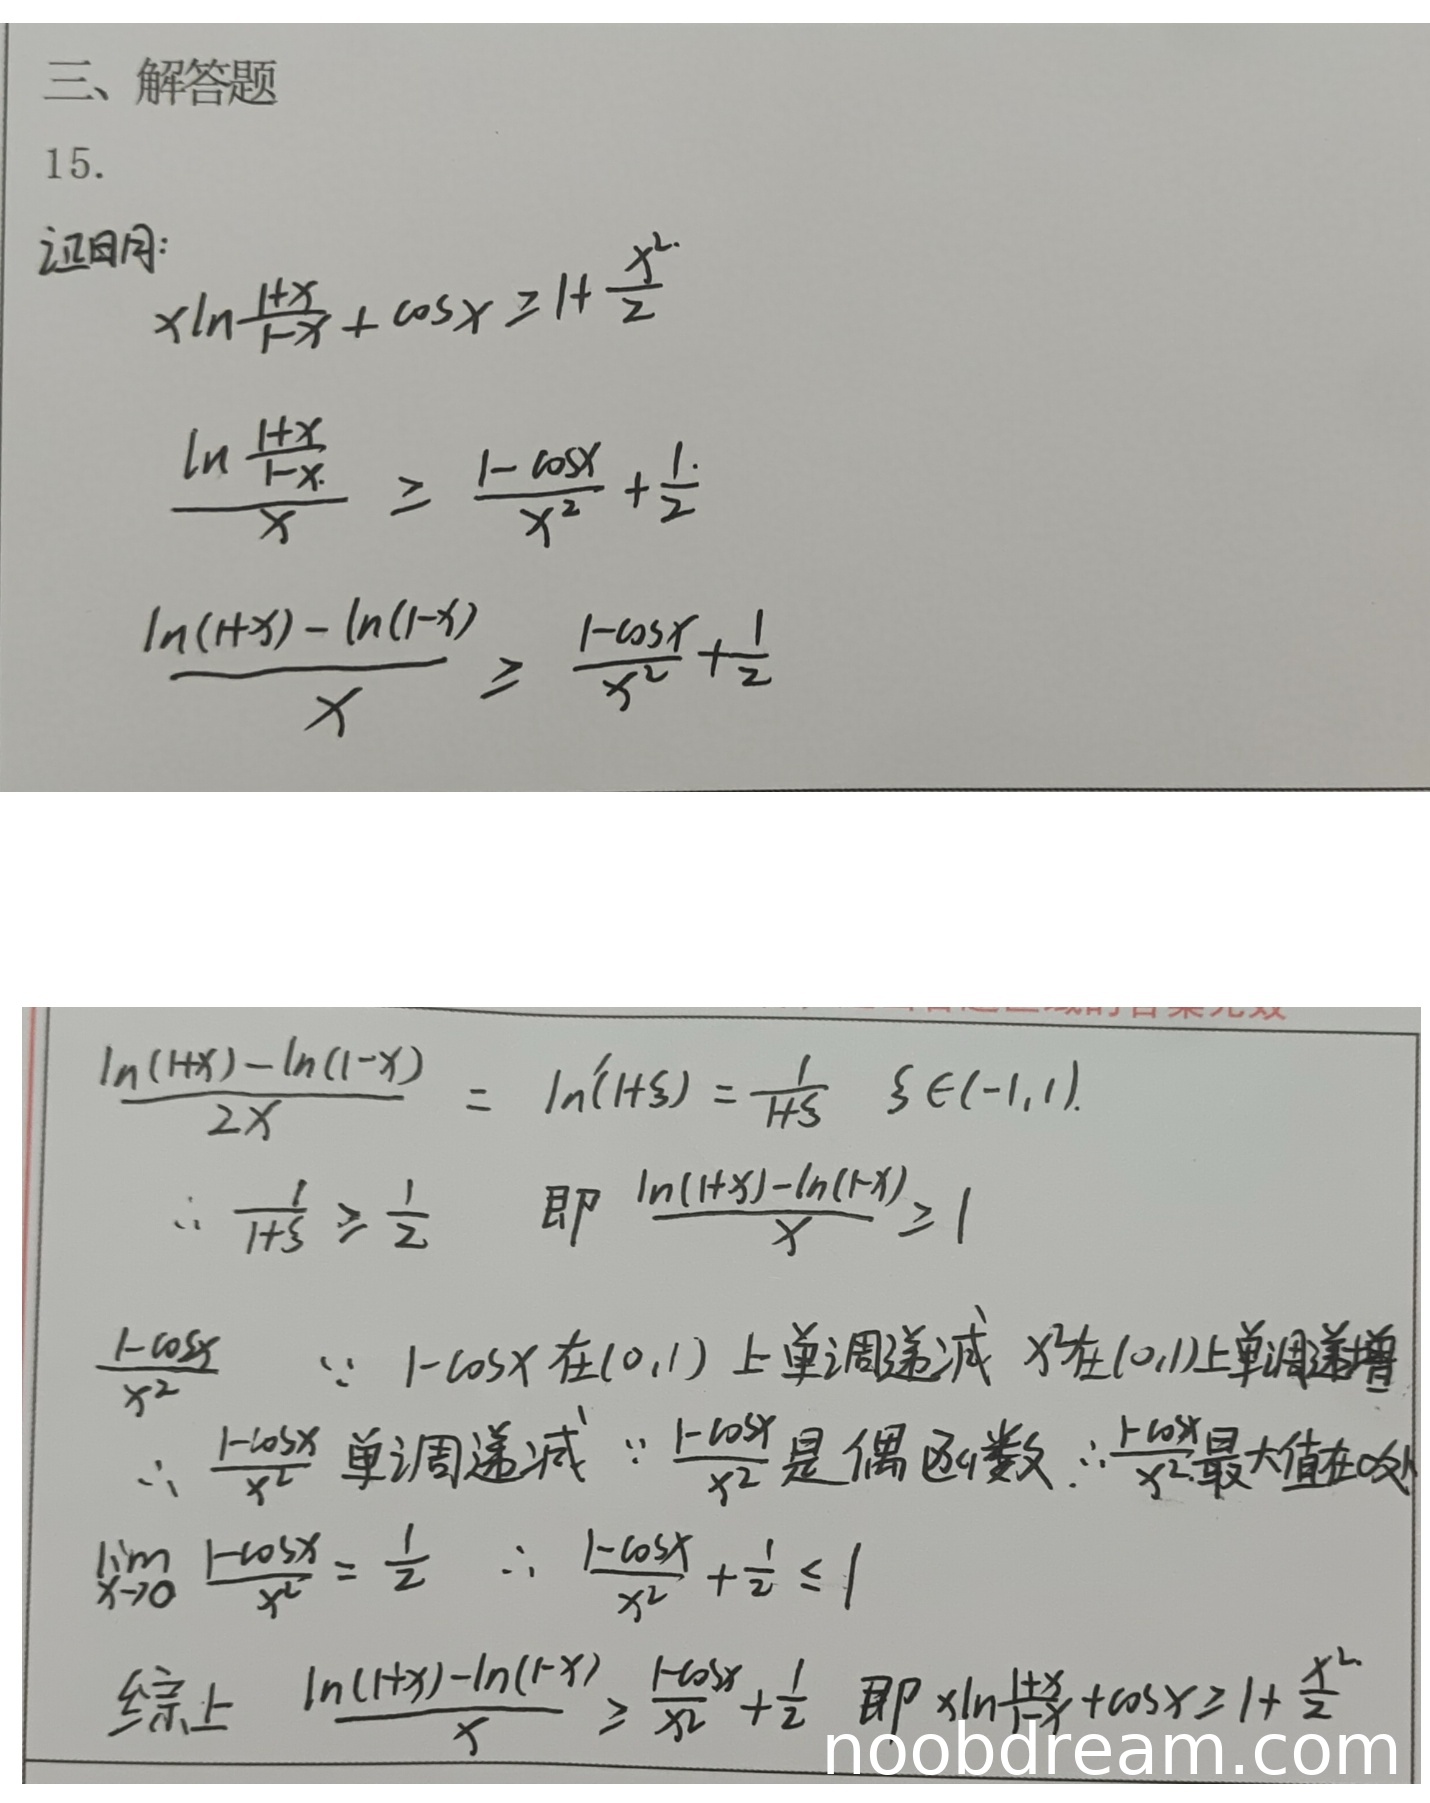 三、解答题
15.
证明:
xln\frac{1+x}{1-x} + cosx ≥ 1+\frac{x^2}{2}
\frac{ln\frac{1+x}{1-x}}{x} ≥ \frac{1-cosx}{x^2} + \frac{1}{2}
\frac{ln(1+x)-ln(1-x)}{x} ≥ \frac{1-cosx}{x^2} + \frac{1}{2}
\frac{ln(1+x)-ln(1-x)}{2x} = ln'(1+ξ) = \frac{1}{1+ξ} ξ∈(-1,1).
∴ \frac{1}{1+ξ} ≥ \frac{1}{2} 即 \frac{ln(1+x)-ln(1-x)}{x} ≥ 1
\frac{1-cosx}{x^2} ∵ 1-cosx在(0,1)上单调递减 x^2在(0,1)上单调递增
∴ \frac{1-cosx}{x^2} 单调递减 ∵ \frac{1-cosx}{x^2} 是偶函数 ∴ \frac{1-cosx}{x^2} 最大值在0处
\lim_{x→0} \frac{1-cosx}{x^2} = \frac{1}{2} ∴ \frac{1-cosx}{x^2} + \frac{1}{2} ≤ 1
综上 \frac{ln(1+x)-ln(1-x)}{x} ≥ \frac{1-cosx}{x^2} + \frac{1}{2} 即 xln\frac{1+x}{1-x} + cosx ≥ 1+\frac{x^2}{2}
noobdream.com